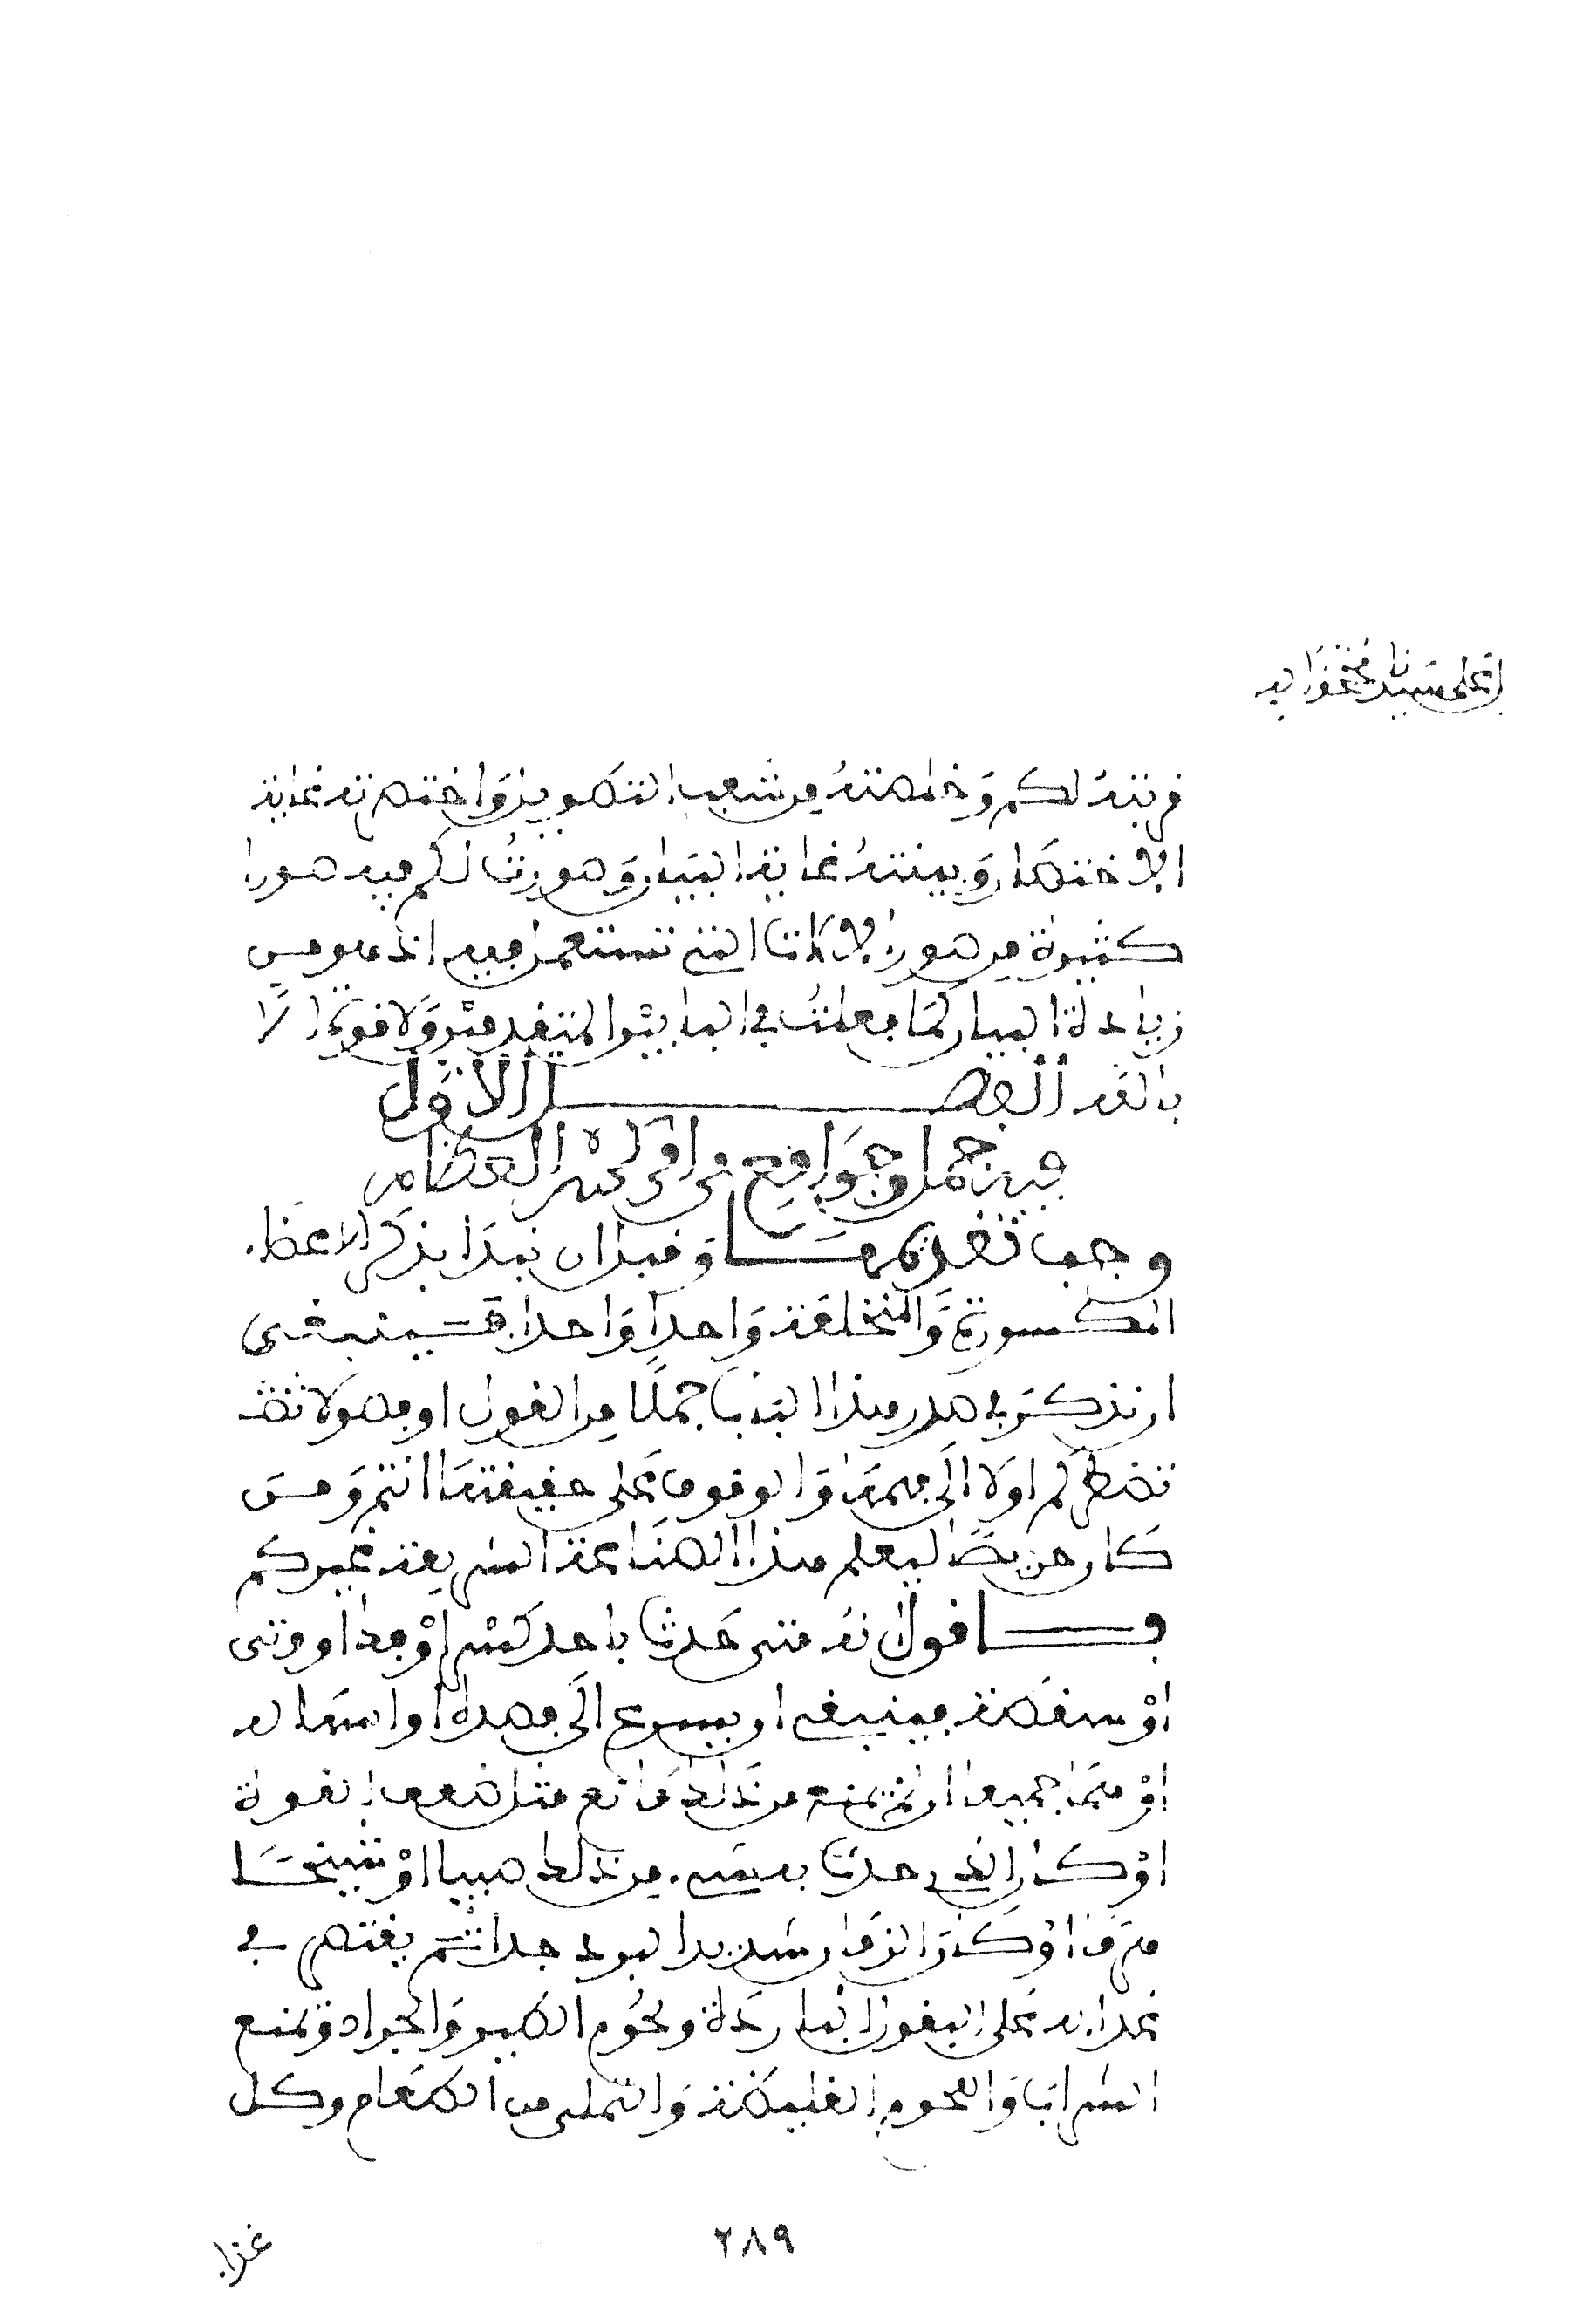 على سيدنا محمد واله
قربته لكم وخلصته من شعب التطويل واختصرته غاية
الاختصار وبينته غاية البيان وصورت لكم فيه صورا
كثيرة من صور الالات التي تستعمل فيه اذ هو من
زيادة البيان كما فعلت في البابين المتقدمين ولا قوة الا
بالله الفصل الاول
فيه جمل وجوامع من امر كسر العظام
وجب تقديمها قبل ان نبدا بذكر الاعضاء
المكسورة والمنخلعة واحدا واحدا فينبغي
ان نذكر في صدر هذا الباب جملا من القول او فصولا
تضطركم اولا الى فهمها والوقوف على حقيقتها انتم ومن
كان حريصا ليعلم هذا الصناعة الشريفة غيركم
فاقول انه متى حدث باحد كسر او فك او وثي
او سقطة فينبغي ان يسرع الى فصده او اسهاله
او هما جميعا ان لم يمنع من ذلك مانع مثل ضعف القوة
او كان الذي حدث به شيء من ذلك صبيا او شيخا
هرما او كان الزمان شديد البرد جدا ثم يقتصر في
غذائه على البقول الباردة ولحوم الطير والجراد ويمنع
الشراب واللحوم الغليظة والتملي من الطعام وكل
غذا
٢٨٩